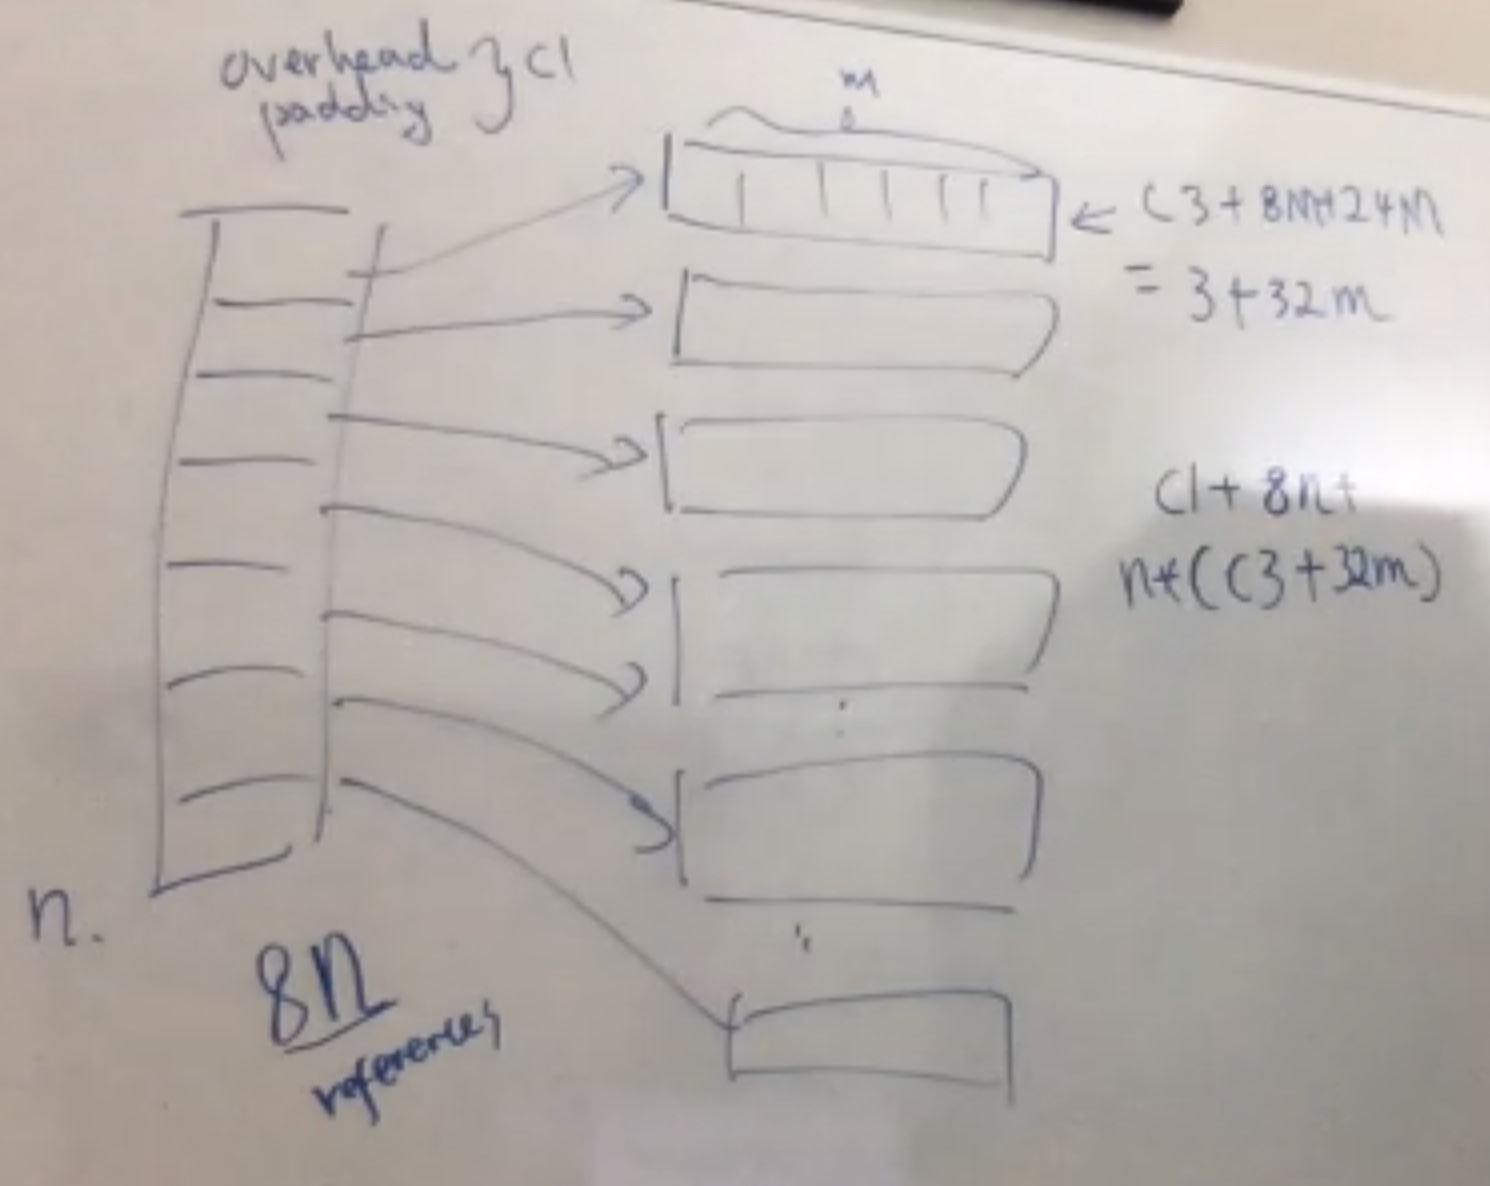 overhead } C1
padding
m
← C3 + 8M+24M
= 3+32m
C1 + 8n+
n*(C3+32m)
n.
8n
references